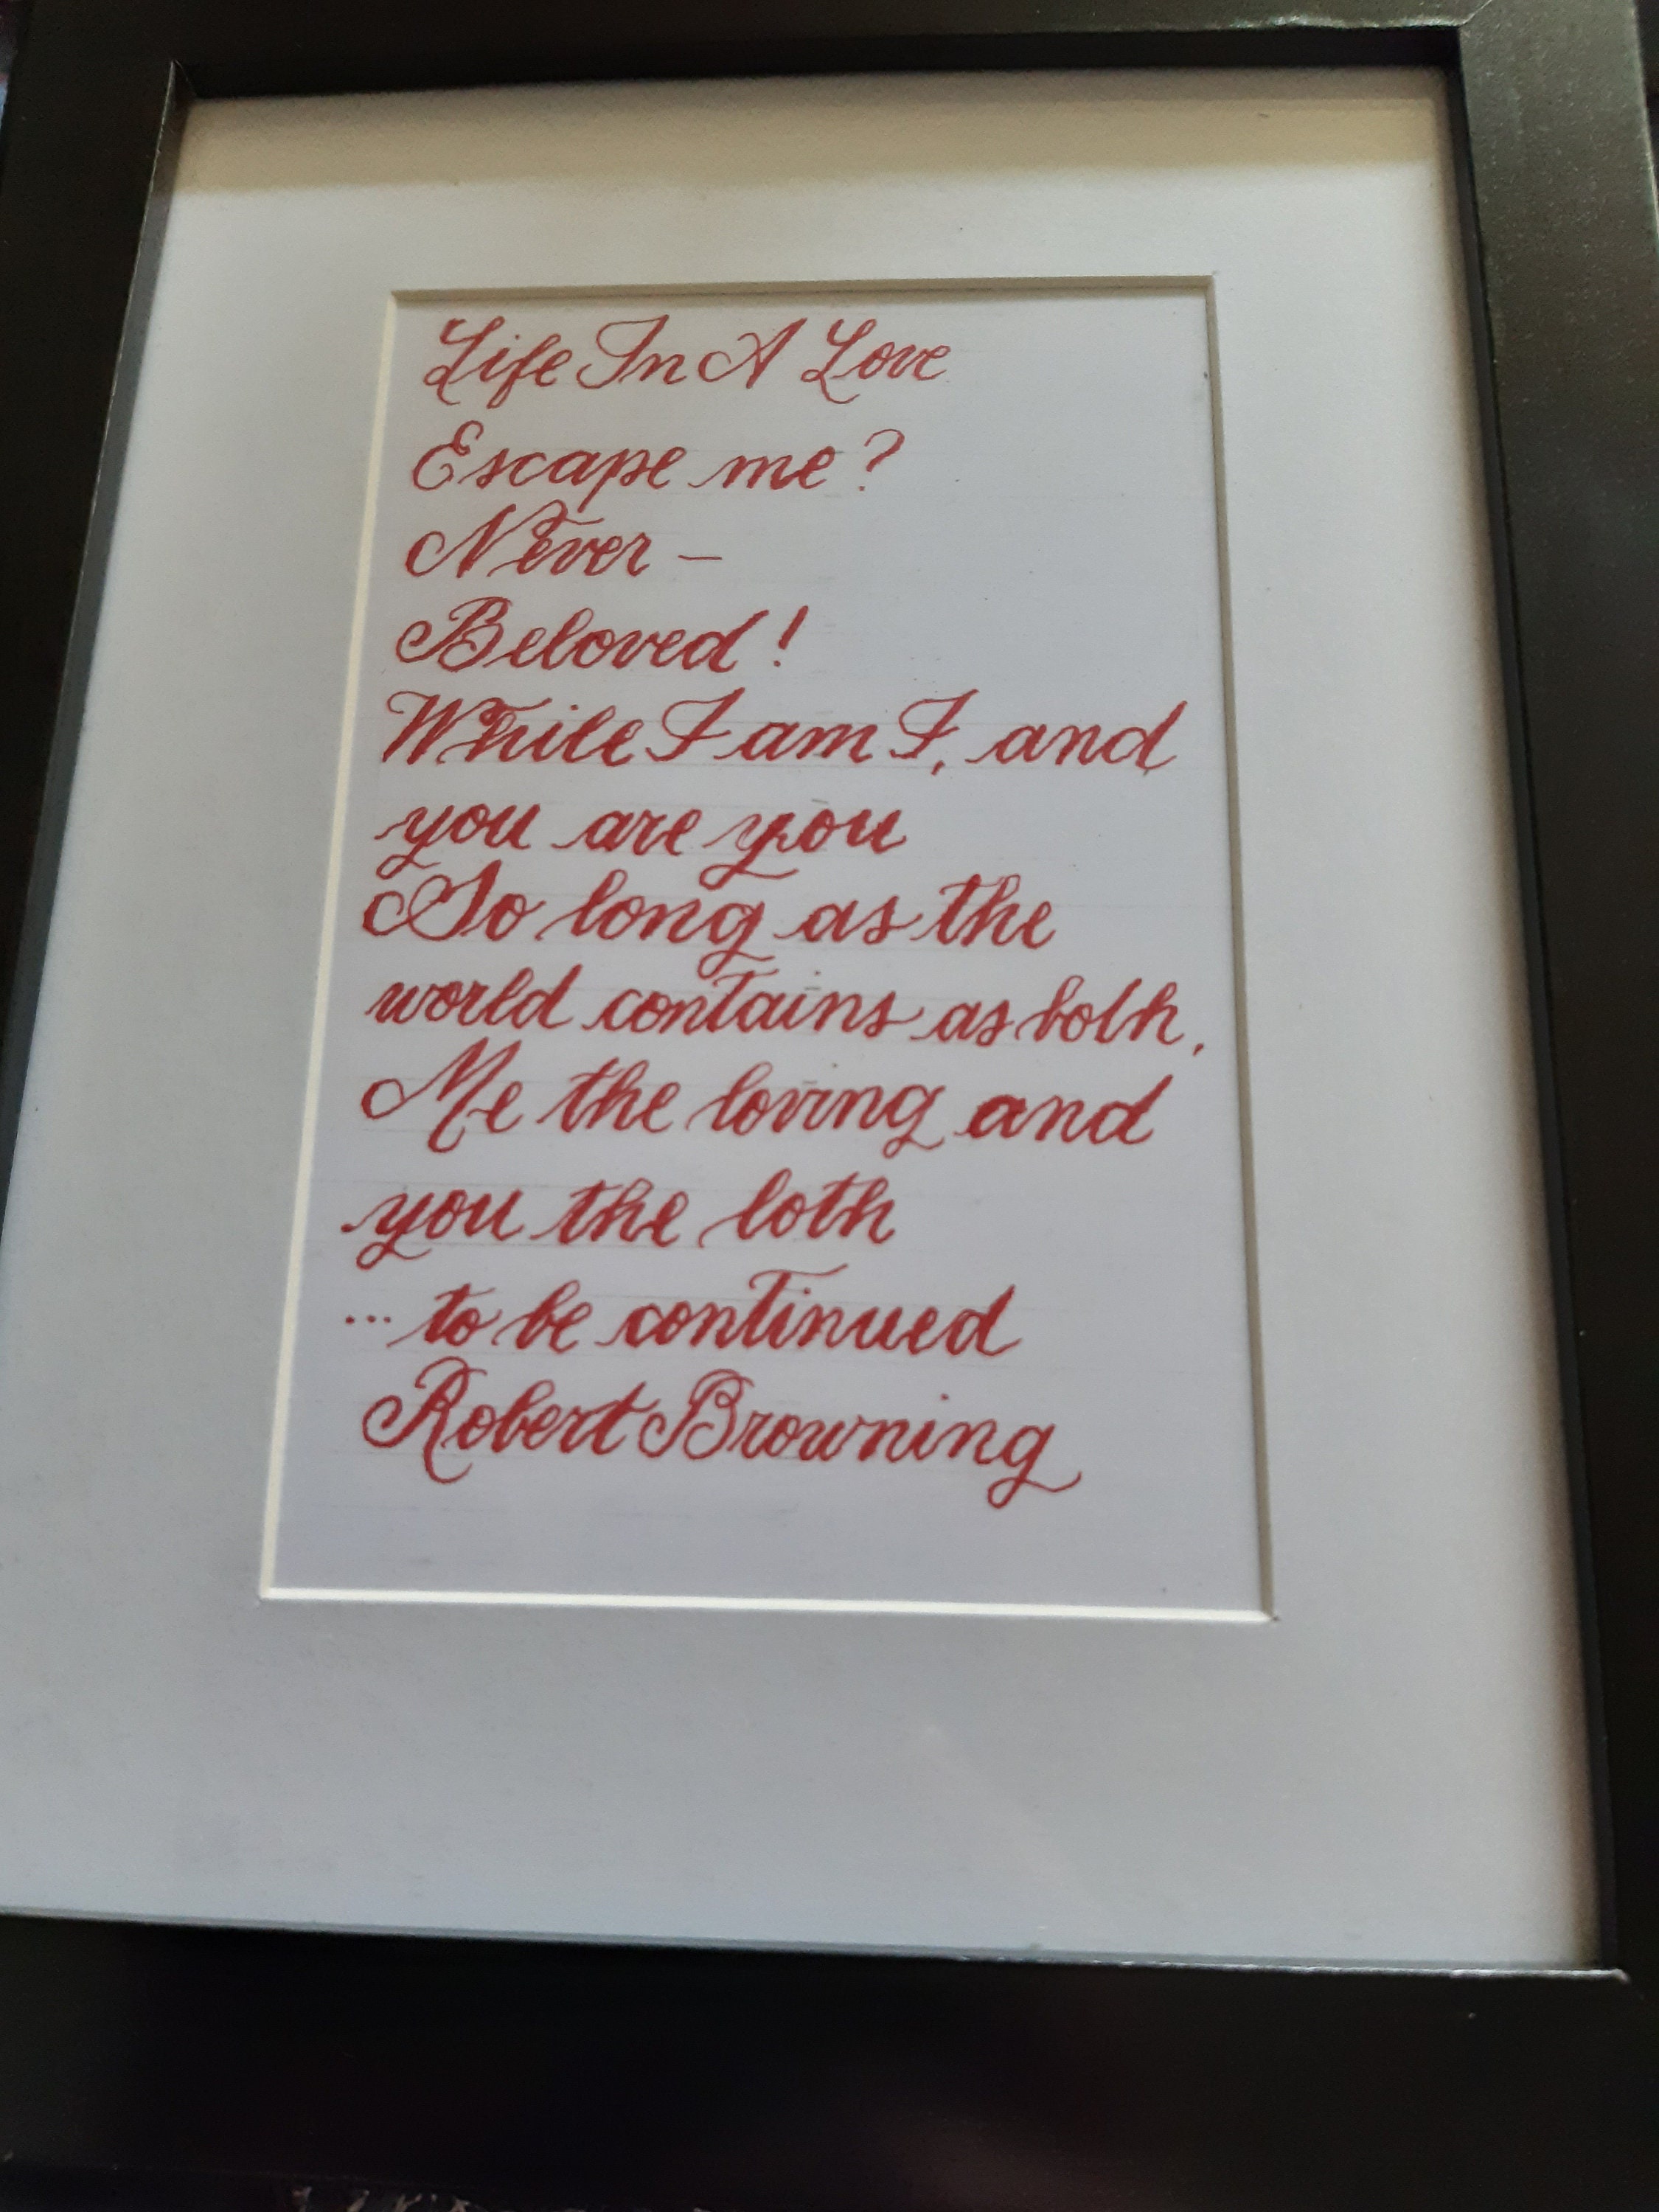 Life In A Love
Escape me?
Never –
Beloved!
While I am I, and
you are you
So long as the
world contains as both,
Me the loving and
you the loth
... to be continued
Robert Browning